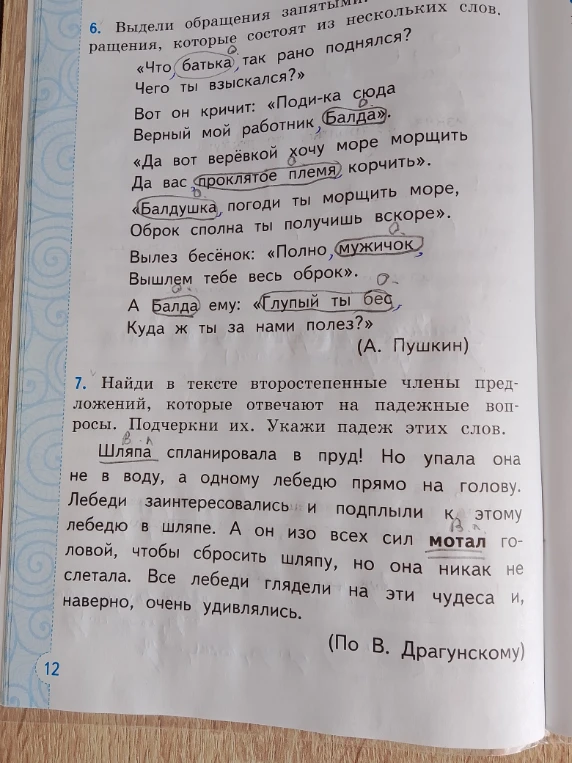 6. Выдели обращения запятыми.
ращения, которые состоят из нескольких слов.
«Что, батька, так рано поднялся?
Чего ты взыскался?»
Вот он кричит: «Поди-ка сюда
Верный мой работник, Балда».
«Да вот верёвкой хочу море морщить
Да вас, проклятое племя, корчить».
«Балдушка, погоди ты морщить море,
Оброк сполна ты получишь вскоре».
Вылез бесёнок: «Полно, мужичок,
Вышлем тебе весь оброк».
А Балда ему: «Глупый ты бес,
Куда ж ты за нами полез?»
(А. Пушкин)
7. Найди в тексте второстепенные члены пред-
ложений, которые отвечают на падежные воп-
росы. Подчеркни их. Укажи падеж этих слов.
В. п
Шляпа спланировала в пруд! Но упала она
не в воду, а одному лебедю прямо на голову.
Лебеди заинтересовались и подплыли к этому
В. п.
лебедю в шляпе. А он изо всех сил мотал го-
ловой, чтобы сбросить шляпу, но она никак не
слетала. Все лебеди глядели на эти чудеса и,
наверно, очень удивлялись.
(По В. Драгунскому)
12